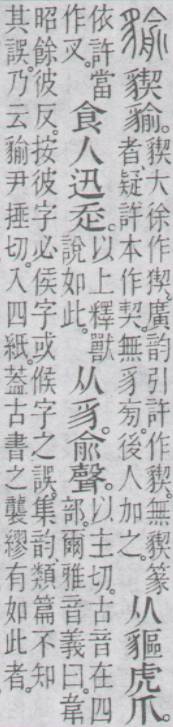 貐 䝟貐。䝟大徐作猰。廣韵引許作䝟。無䝟篆者、疑許本作契無豸旁。後人加之。从貙虎爪。
依許當作叉。食人迅走。以上釋獸說如此。从豸。俞聲。以主切。古音在四部。爾雅音義曰。韋
昭餘彼反。按彼字必侯字或候字之誤。集韵類篇不知
其誤。乃云貐尹捶切。入四紙。葢古書之襲繆有如此者。